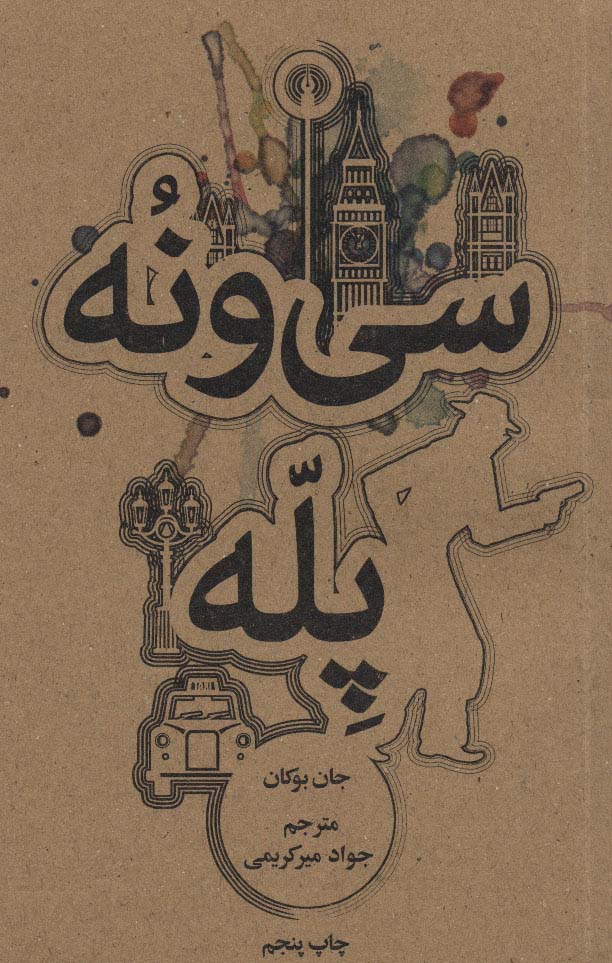 سی‌ونُه
پِلّه
TAXI
جان بوکان
مترجم
جواد میرکریمی
چاپ پنجم